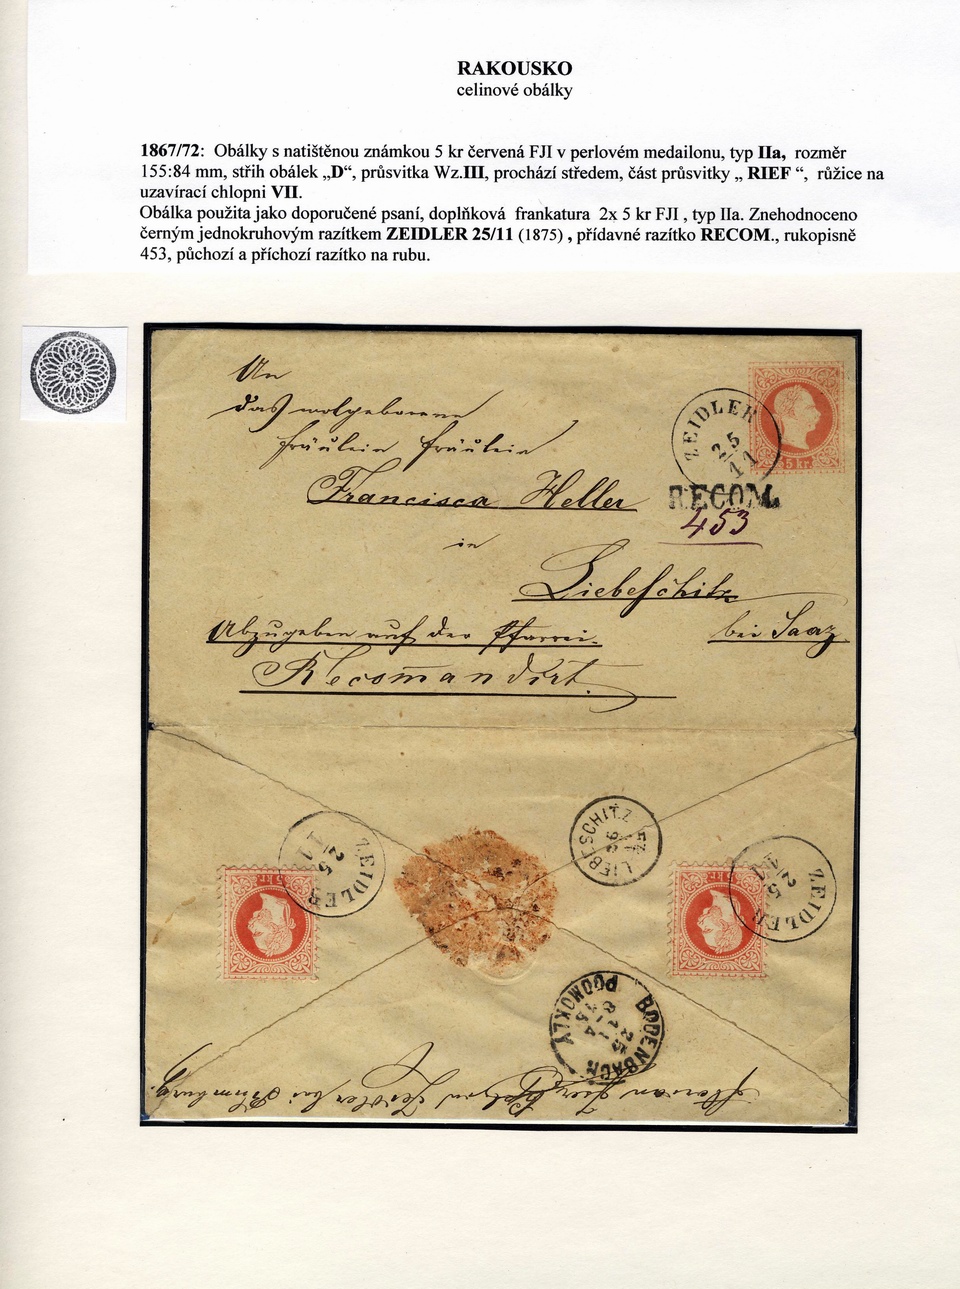 RAKOUSKO
celinové obálky
1867/72: Obálky s natištěnou známkou 5 kr červená FJI v perlovém medailonu, typ IIa, rozměr
155:84 mm, střih obálek „D“, průsvitka Wz.III, prochází středem, část průsvitky „ RIEF “, růžice na
uzavírací chlopni VII.
Obálka použita jako doporučené psaní, doplňková frankatura 2x 5 kr FJI , typ IIa. Znehodnoceno
černým jednokruhovým razítkem ZEIDLER 25/11 (1875) , přídavné razítko RECOM., rukopisně
453, půchozí a příchozí razítko na rubu.
An
das wolgeborene
Fräulein Fräulein
Francisca Heller
in
Liebeschitz
Abzugeben auf der Pfarrei.
bei Saaz
Recomandirt.
ZEIDLER
25/11
5 kr.
RECOM.
453
ZEIDLER
25
11
5 kr.
LIEBESCHITZ
ZEIDLER
25
11
5 kr.
BODENBACH
PODMOKLY
25
11